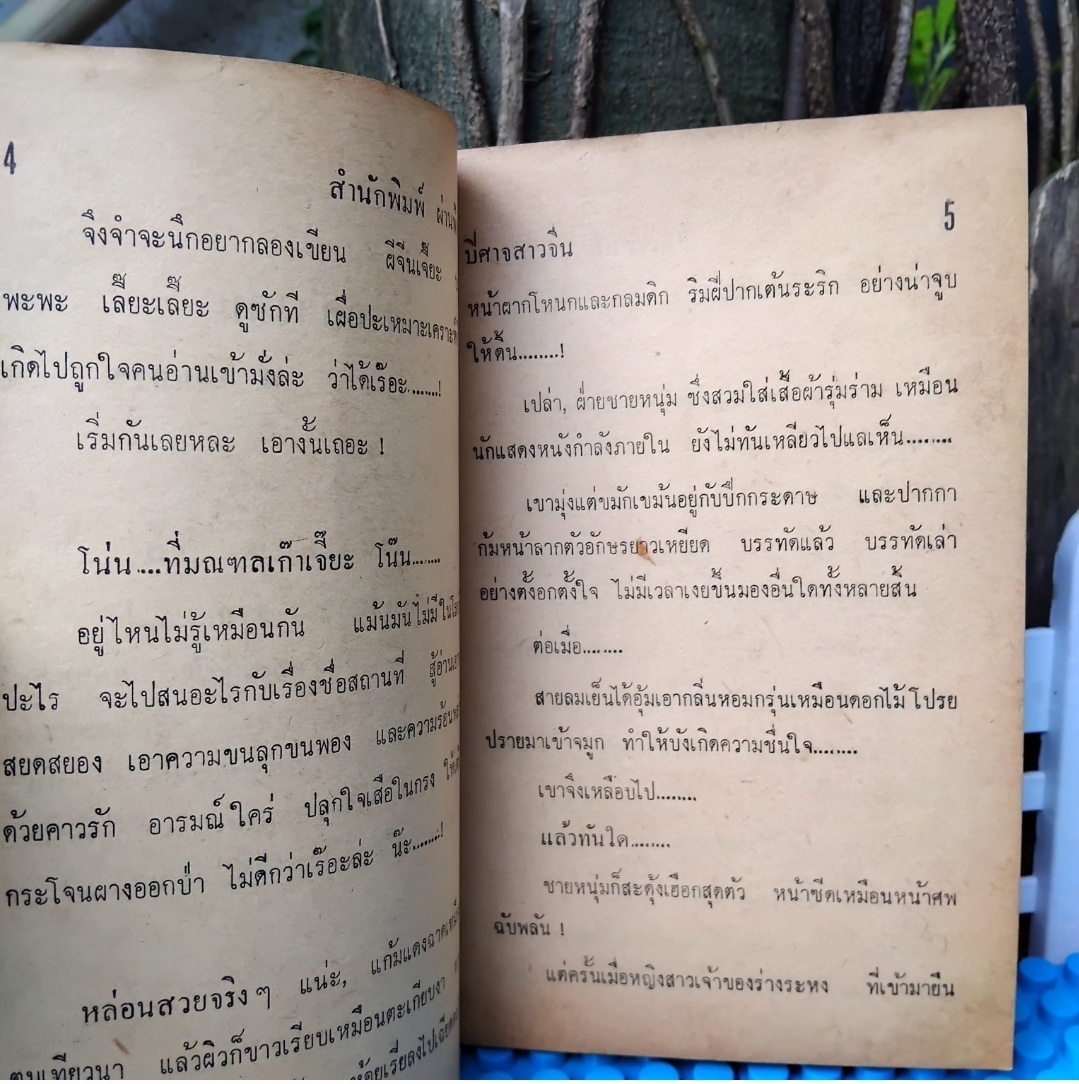 4
สำนักพิมพ์
จึงจำจะนึกอยากลองเขียน ผีจีนเจี๊ยะ
พะพะ เลี๊ยะเลี๊ยะ ดูซักที เผื่อปะเหมาะเคราะห์
เกิดไปถูกใจคนอ่านเข้ามั่งล่ะ ว่าได้เร๊อะ........!
เริ่มกันเลยหละ เอางั้นเถอะ !
โน่น ....ที่มณฑลเก๊าเจี๊ยะ โน๊น........
อยู่ไหนไม่รู้เหมือนกัน แม้นมันไม่มีในโลก
ปะไร จะไปสนอะไรกับเรื่องชื่อสถานที่
สยดสยอง เอาความขนลุกขนพอง และความร้อน
ด้วยคาวรัก อารมณ์ใคร่ ปลุกใจเสือในกรง
กระโจนผางออกป่า ไม่ดีกว่าเร๊อะล่ะ น๊ะ........!
หล่อนสวยจริง ๆ แน่ะ, แก้มแดง
แล้วผิวก็ขาวเรียบเหมือนตะเกียบงา
5
ปีศาจสาวจีน
หน้าผากโหนกและกลมดิก ริมฝีปากเต้นระริก อย่างน่าจูบ
ให้ดิ้น........!
เปล่า, ฝ่ายชายหนุ่ม ซึ่งสวมใส่เสื้อผ้ารุ่มร่าม เหมือน
นักแสดงหนังกำลังภายใน ยังไม่ทันเหลียวไปแลเห็น........
เขามุ่งแต่ขมักเขม้นอยู่กับปึกกระดาษ และปากกา
ก้มหน้าลากตัวอักษรยาวเหยียด บรรทัดแล้ว บรรทัดเล่า
อย่างตั้งอกตั้งใจ ไม่มีเวลาเงยขึ้นมองอื่นใดทั้งหลายสิ้น
ต่อเมื่อ........
สายลมเย็นได้อุ้มเอากลิ่นหอมกรุ่นเหมือนดอกไม้ โปรย
ปรายมาเข้าจมูก ทำให้บังเกิดความชื่นใจ........
เขาจึงเหลือบไป........
แล้วทันใด........
ชายหนุ่มก็สะดุ้งเฮือกสุดตัว หน้าซีดเหมือนหน้าศพ
ฉับพลัน !
แต่ครั้นเมื่อหญิงสาวเจ้าของร่างระหง ที่เข้ามายืน